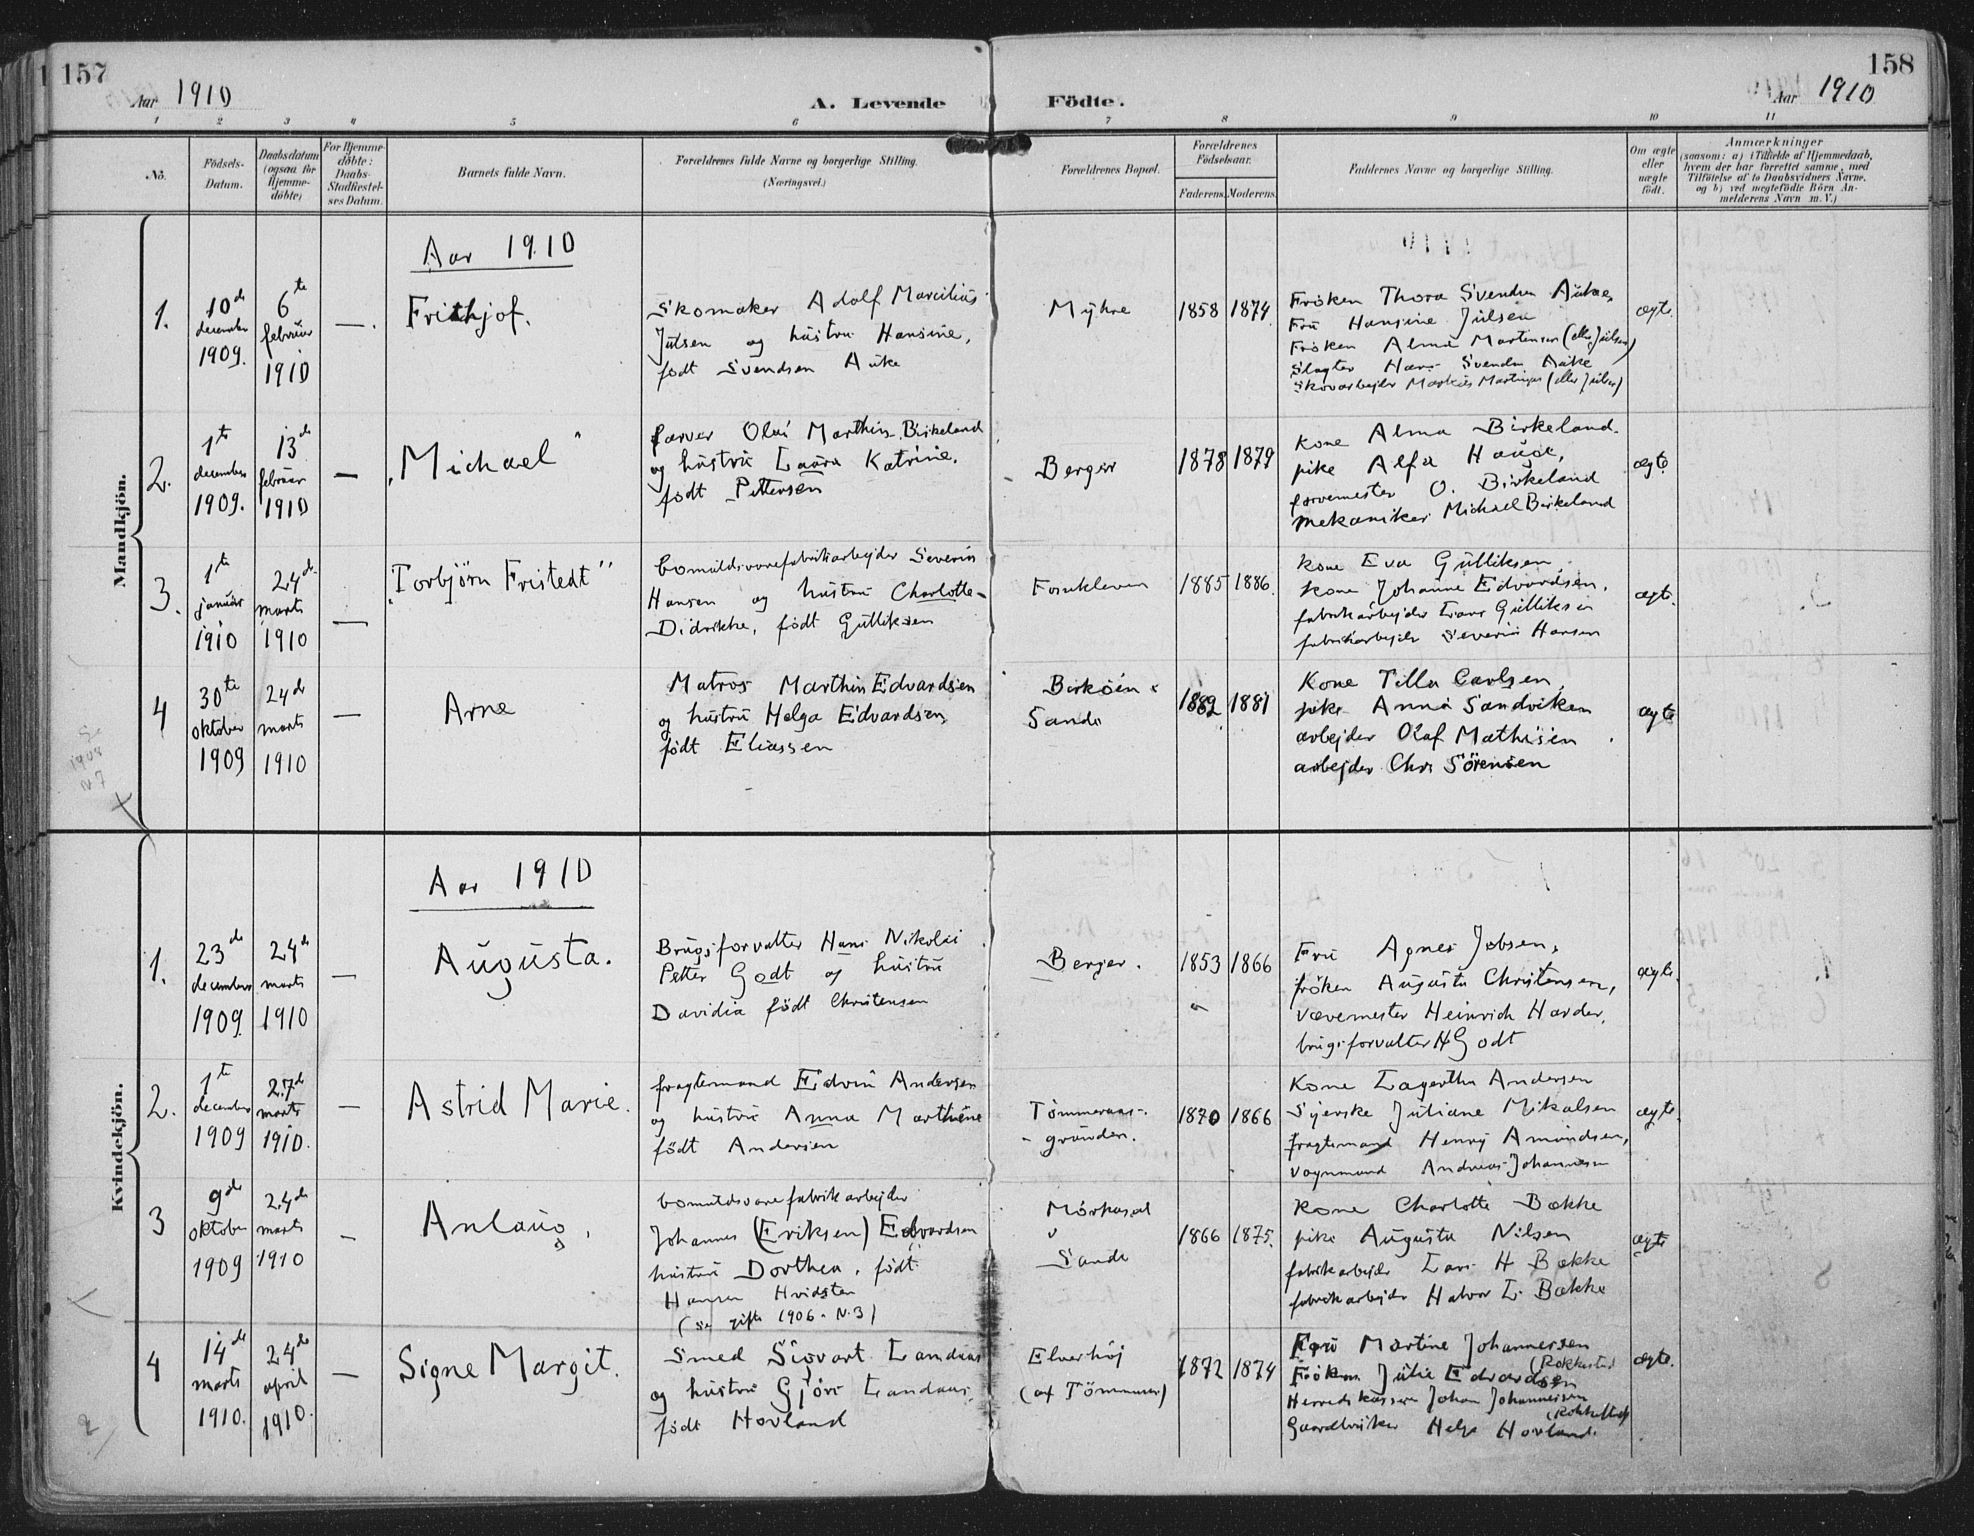 157
Aar 1910
A. Levende
Födte.
158
Aar 1910
1 2 3 4 5 6 7 8 9 10 11
No.
Födsels-
Datum.
Daabsdatum
(ogsaa for
Hjemme-
döbte)
For Hjemme-
döbte:
Daabs-
Stadfæstel-
ses Datum.
Barnets fulde Navn.
Forældrenes fulde Navne og borgerlige Stilling.
(Næringsvei.)
Forældrenes Bopæl.
Forældrenes
Födselsaar.
Faderens. Moderens.
Faddernes Navne og borgerlige Stilling.
Om ægte
eller
uægte
født.
Anmærkninger
(saasom: a) i Tilfælde af Hjemmedaab,
hvem der har forrettet samme, med
Tilföielse af to Daabsvidners Navne,
og b) ved uægtefödte Börn An-
melderens Navn m. V.)
Mandkjön.
Aar 1910
1.
10de
december
1909.
6te
februar
1910
—.
Frithjof.
Skomaker Adolf Marcilius
Julsen og hustru Hansine,
født Svendsen Auke
Myhre
1858 1874.
Fröken Thora Svendsen Auke,
Fru Hansine Julsen
Fröken Alma Martinsen (eller Julsen)
Slagter Hans Svendsen Auke
Skovarbejder Markus Martinsen (eller Julsen)
ægte
2.
1te
december
1909.
13de
februar
1910
—
"Michael"
farver Olai Marthin Birkeland
og hustru Laura Katrine,
født Pettersen
Berger
1878 1879
Kone Alma Birkeland.
pike Alfa Hauge,
farvemester O. Birkeland
mekaniker Michael Birkeland
ægte
3.
1te
januar
1910
24de
marts
1910
—
"Torbjörn Fristedt"
bomuldsvarefabrikarbejder Severin
Hansen og hustru Charlotte
Didrikke, født Gulliksen
Fossekleven
1885 1886.
Kone Eva Gulliksen,
Kone Johanne Edvardsen,
fabrikarbejder Lars Gulliksen
fabrikarbejder Severin Hansen
ægte.
4
30te
oktober
1909
24de
marts
1910
—
Arne
Matros Marthin Edvardsen
og hustru Helga Edvardsen,
født Eliassen
Sande
1882 1881
Kone Tilla Carlsen,
pike Anna Sandviken
arbejder Olaf Mathisen
arbejder Chr. Sörensen
ægte
1908
Kvindekjön.
Aar 1910
1.
23de
december
1909
24de
marts
1910
—
Augusta.
Brugsforvalter Hans Nikolai
Petter Godt og hustru
Davidia født Christensen
Berger.
1853 1866
Fru Agnes Jebsen,
fröken Augusta Christensen,
vævemester Heinrich Harder,
brugsforvalter H Godt
ægte.
2.
1te
december
1909
27de
marts
1910.
—
Astrid Marie.
fragtemand Edvin Andersen
og hustru Anna Marthine
født Andersen
Tömmeraas-
grunden.
1870 1866
Kone Lagertha Andersen
Syerske Juliane Mikalsen
fragtemand Henry Amundsen,
vognmand Andreas Johannesen
ægte.
3
9de
oktober
1909
24de
marts
1910
—
Anlaug,
bomuldsvarefabrikarbejder
Johannes (Eriksen) Edvardsen
hustru Dorthea, født
Hansen Hvidsten
(se gifte 1906. N. 3)
Mörkassel
Sande
1866 1875.
Kone Charlotte Bække
pike Augusta Nilsen
fabrikarbejder Lars H Bække
fabrikarbejder Halvor L. Bække
ægte
4
14de
marts
1910.
24de
april
1910.
—
Signe Margit.
Smed Sigvart Landaas
og hustru Gjöri Landaas,
født Hovland
Elverhöj
(af Tömmeraas)
1872 1874
Fru Martine Johannesen
(Rokkestad)
Fröken Julie Edvardsen
Herredskasserer Johan Johannesen
(Rokkestad)
Gaardbruker Helge Hovland.
ægte.